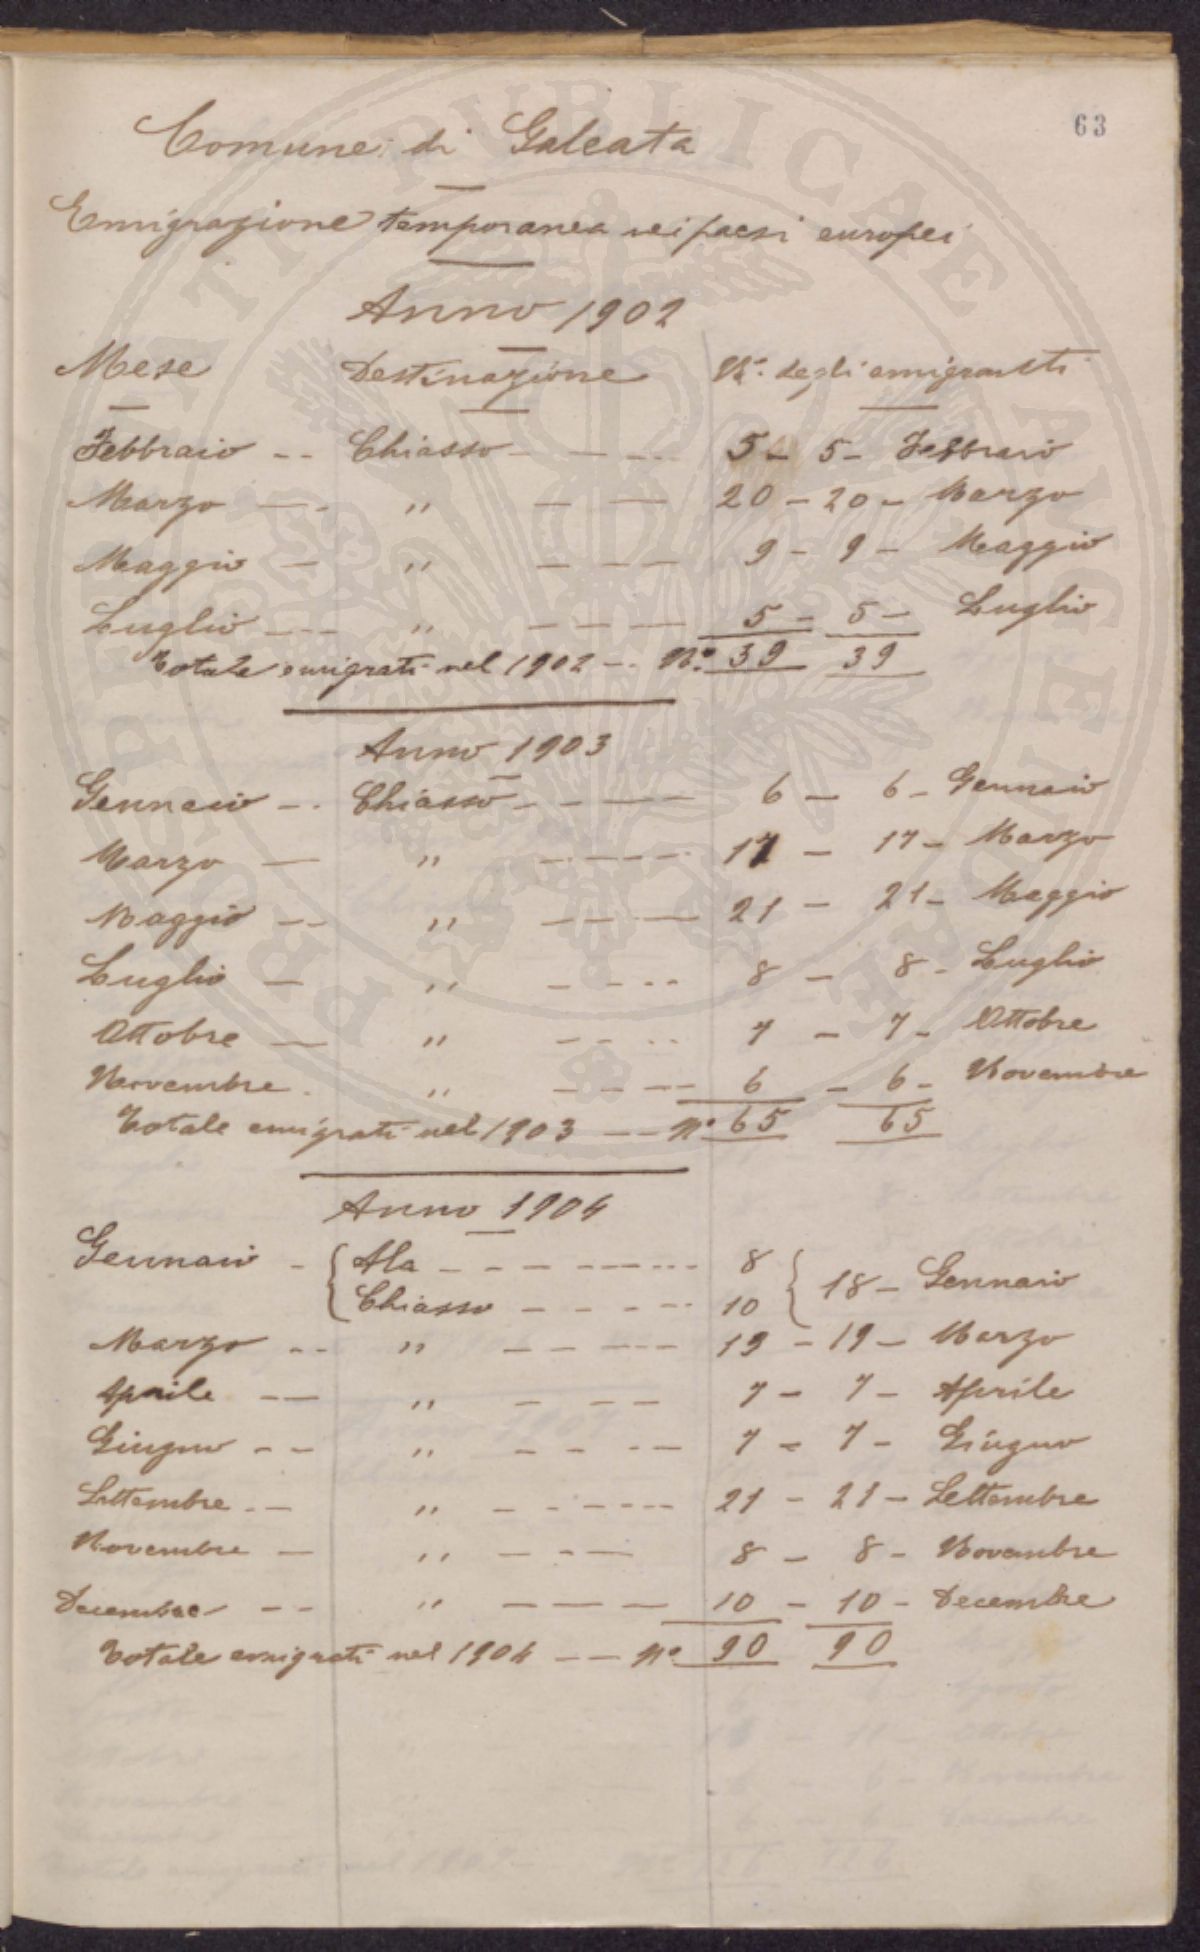 63
Comune di Galeata
Emigrazione temporanea nei paesi europei
Anno 1902
Mese Destinazione N.° degli emigranti
Febbraio -- Chiasso - - - - 5 - 5 - Febbraio
Marzo - - " - - - 20 - 20 - Marzo
Maggio - " - - - - 9 - 9 - Maggio
Luglio - - - " - - - - 5 - 5 - Luglio
Totale emigrati nel 1902 - - N.° 39 39
Anno 1903
Gennaio - - Chiasso - - - - - 6 - 6 - Gennaio
Marzo - " - - - - - 17 - 17 - Marzo
Maggio - - " - - - - 21 - 21 - Maggio
Luglio - " - - - - 8 - 8 - Luglio
Ottobre - " - - - - 7 - 7 - Ottobre
Novembre - " - - - - 6 - 6 - Novembre
Totale emigrati nel 1903 - - - N.° 65 65
Anno 1904
Gennaio - { Ala - - - - - - - - 8 } 18 - Gennaio
{ Chiasso - - - - - 10
Marzo - - " - - - - - 19 - 19 - Marzo
Aprile - - " - - - - 7 - 7 - Aprile
Giugno - - " - - - - 7 - 7 - Giugno
Settembre - - " - - - - - - 21 - 21 - Settembre
Novembre - " - - - 8 - 8 - Novembre
Decembre - - " - - - - 10 - 10 - Decembre
Totale emigrati nel 1904 - - - N.° 90 90
PROSPERITATI PUBLICAE AUGENDAE